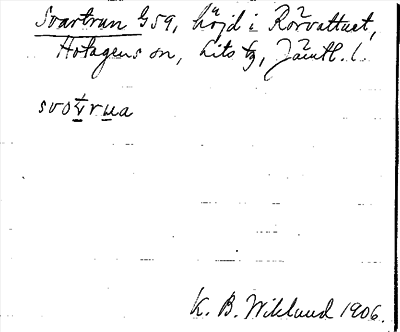 Svartrun G59, höjd i Rörvattnet,
Hotagens sn, Lits tg, Jämtl. l.
svot̬rua
K. B. Wiklund 1906.